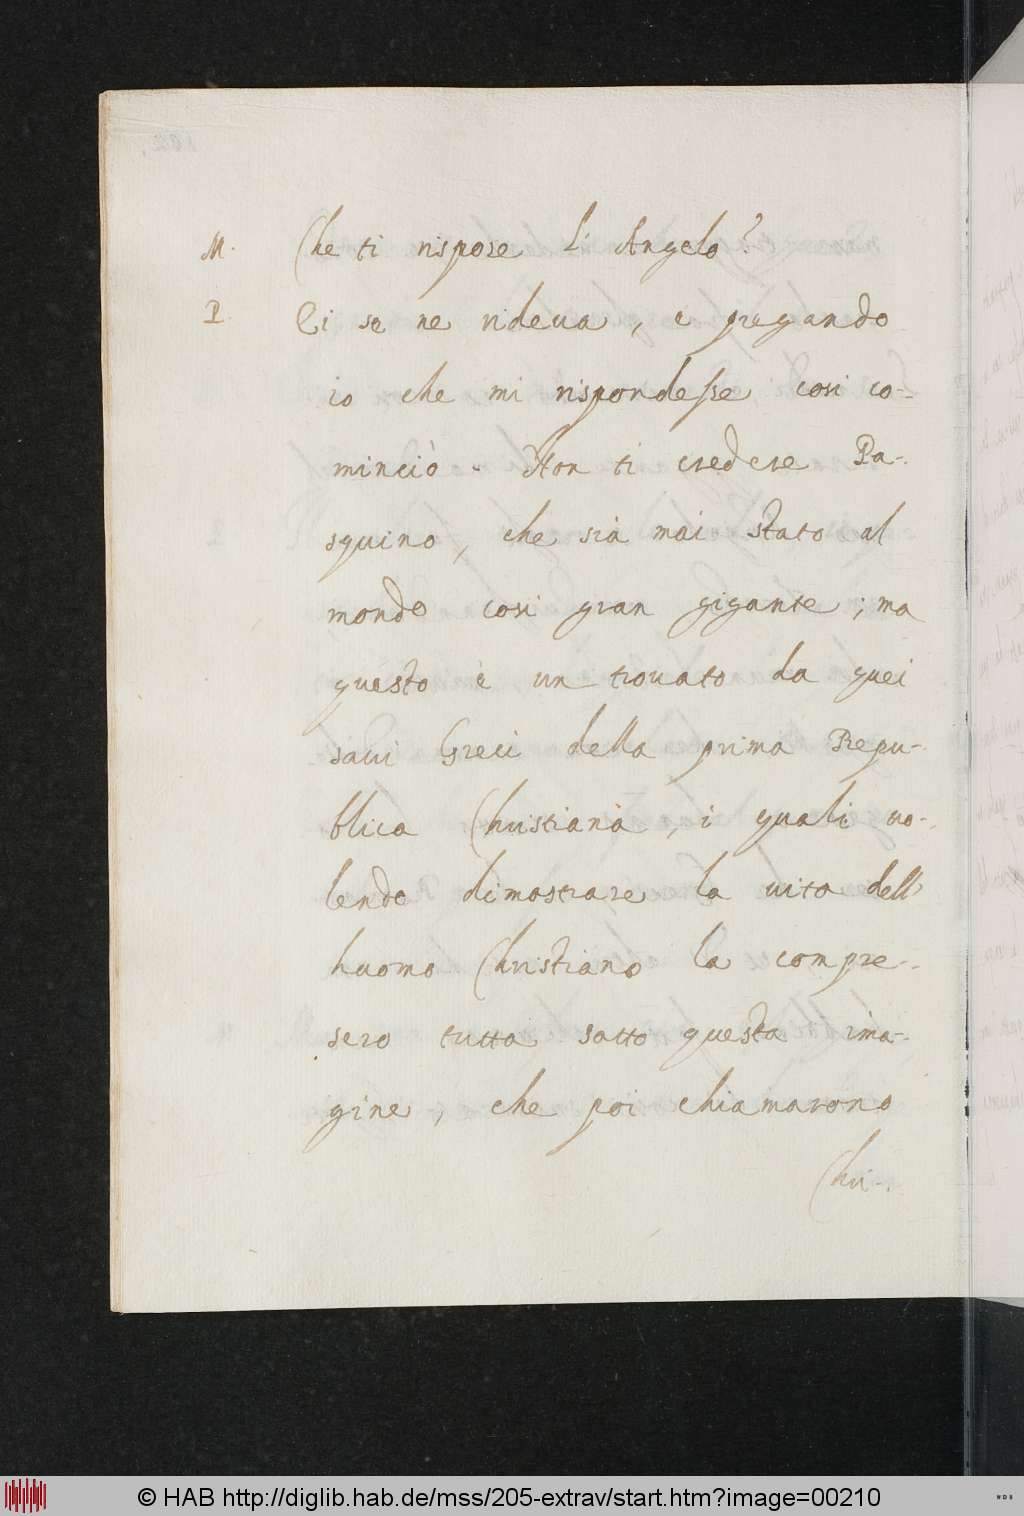 M. Che ti rispose l'Angelo?
P. Ei se ne rideua, e pregando
io che mi rispondesse, cosi co-
minciò. Non ti credere Pa-
squino, che sia mai stato al
mondo cosi gran gigante; ma
questo è un trouato da quei
saui Greci della prima Repu-
blica Christiana, i quali uo-
lendo dimostrare la uita dell'
huomo Christiano la compre-
sero tutta sotto questa ima-
gine, che poi chiamarono
Chri-
© HAB http://diglib.hab.de/mss/205-extrav/start.htm?image=00210